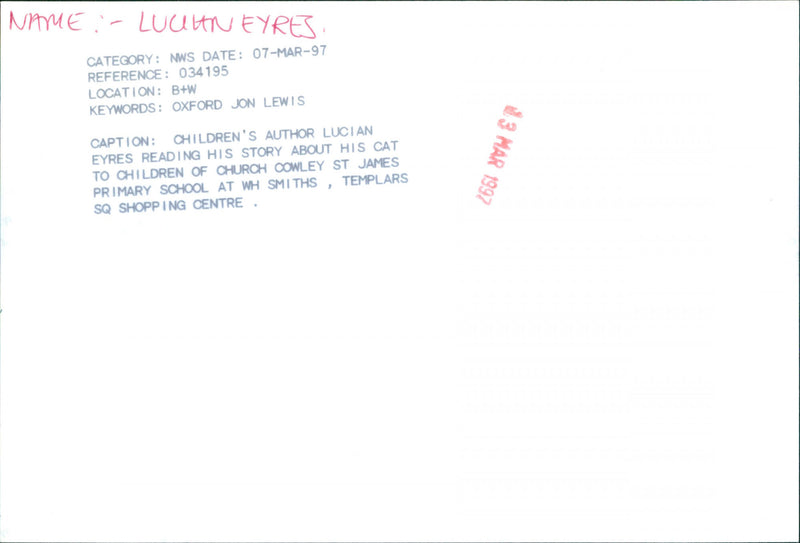 NAME :- LUCIAN EYRES.
CATEGORY: NWS DATE: 07-MAR-97
REFERENCE: 034195
LOCATION: B+W
KEYWORDS: OXFORD JON LEWIS
CAPTION: CHILDREN'S AUTHOR LUCIAN
EYRES READING HIS STORY ABOUT HIS CAT
TO CHILDREN OF CHURCH COWLEY ST JAMES
PRIMARY SCHOOL AT WH SMITHS , TEMPLARS
SQ SHOPPING CENTRE .
13 MAR 1997